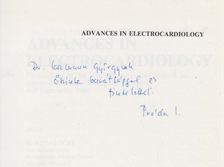 ADVANCES IN ELECTROCARDIOLOGY
Dr. Györgynek
őszinte barátsággal és
tisztelettel
Préda I.